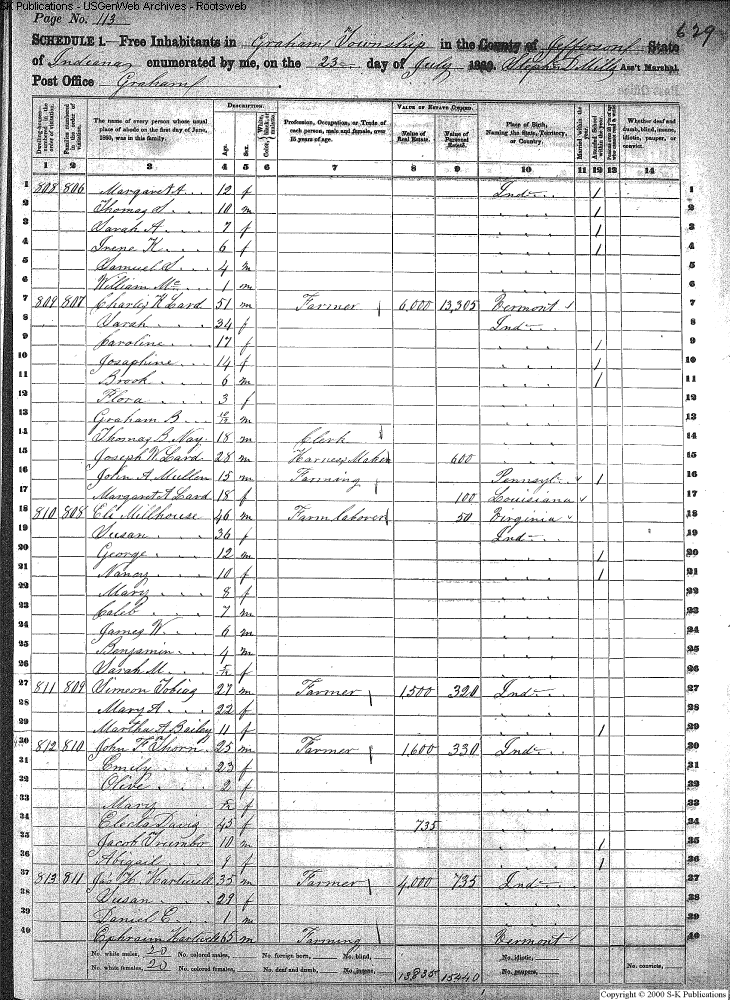 S-K Publications - USGenWeb Archives - Rootsweb
Page No. 113
629
SCHEDULE 1.—Free Inhabitants in Graham Township in the County of Jefferson State
of Indiana enumerated by me, on the 23 day of July 1860. Ass't Marshal
Post Office Graham
DESCRIPTION. VALUE OF ESTATE OWNED.
Dwelling-houses— numbered in the order of visitation.
Families numbered in the order of visitation.
The name of every person whose usual place of abode on the first day of June, 1860, was in this family.
Age. Sex. Color,
Profession, Occupation, or Trade of each person, male and female, over 15 years of age.
Value of Real Estate. Value of Personal Estate.
Place of Birth, Naming the State, Territory, or Country.
Married within the year.
Whether deaf and dumb, blind, insane, idiotic, pauper, or convict.
1 2 3 4 5 6 7 8 9 10 11 12 13 14
1 808 806 Margaret A. 12 f Ind / 1
2 Thomas S. 10 m / 2
3 Sarah A. 7 f / 3
4 Irene K. 6 f / 4
5 Samuel S. 4 m 5
6 William Mc 1 m 6
7 809 807 Charles K. Lard 51 m Farmer 6,000 13,305 Vermont 7
8 Sarah 34 f Ind 8
9 Caroline 17 f / 9
10 Josaphine 14 f / 10
11 Brook 6 m / 11
12 Flora 3 f 12
13 Graham B. m 13
14 Thomas B. Nay 18 m Clerk 14
15 Joseph W. Lard 28 m Harness Maker 600 15
16 John A. Mullen 15 m Farming Pennsyl / 16
17 Margaret A. Lard 18 f 100 Louisiana 17
18 810 808 Eli Millhouse 46 m Farm laborer 50 Virginia 18
19 Susan 36 f Ind 19
20 George 12 m / 20
21 Nancy 10 f / 21
22 Mary 8 f 22
23 Caleb 7 m 23
24 James W. 6 m 24
25 Benjamin 4 m 25
26 Sarah M. f 26
27 811 809 Simeon Tobias 27 m Farmer 1,500 320 Ind 27
28 Mary A. 22 f 28
29 Martha A. Bailey 11 f / 29
30 812 810 John F. Thorn 25 m Farmer 1,600 330 Ind 30
31 Emily 23 f 31
32 Olive 2 f 32
33 Mary f 33
34 Electa Davis 45 f 735 34
35 Jacob Trumbo 10 m / 35
36 Abigail 9 f / 36
37 813 811 Jas. H. Hartwell 35 m Farmer 4,000 735 Ind 37
38 Susan 29 f 38
39 Daniel E. 1 m 39
40 Ephraim Hartwell 65 m Farming Vermont 40
No. white males, 20 No. colored males, No. foreign born, No. blind, No. idiotic,
No. white females, 20 No. colored females, No. deaf and dumb, No. insane, 13,835 15440 No. paupers, No. convicts,
Copyright © 2000 S-K Publications